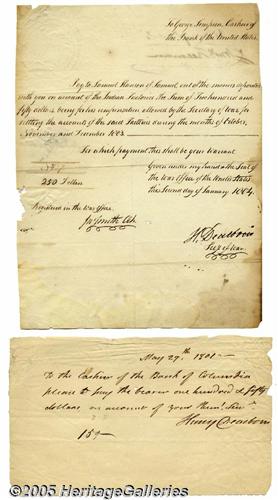 To George Simpson, Cashier of
the Bank of the United States.
Pay to Samuel Hanson of Samuel, out of the monies deposited
with you on account of the Indian Factories the Sum of Two hundred and
fifty dollars being for his compensation allowed by the Secretary of War, for
settling the accounts of the said Factors during the months of October,
November and December 1803.
For which payment this shall be your Warrant
Given under my hand & the Seal of
the War Office of the United States
this second day of January 1804.
250 Dollars
Registered in the War Office
JW Smith Clk
H. Dearborn
Secy of War
May 29th 1801
To the Cashier of the Bank of Columbia
please to pay the bearer one hundred & fifty
dollars on account of your
Henry Dearborn
©2005 HeritageGalleries.com